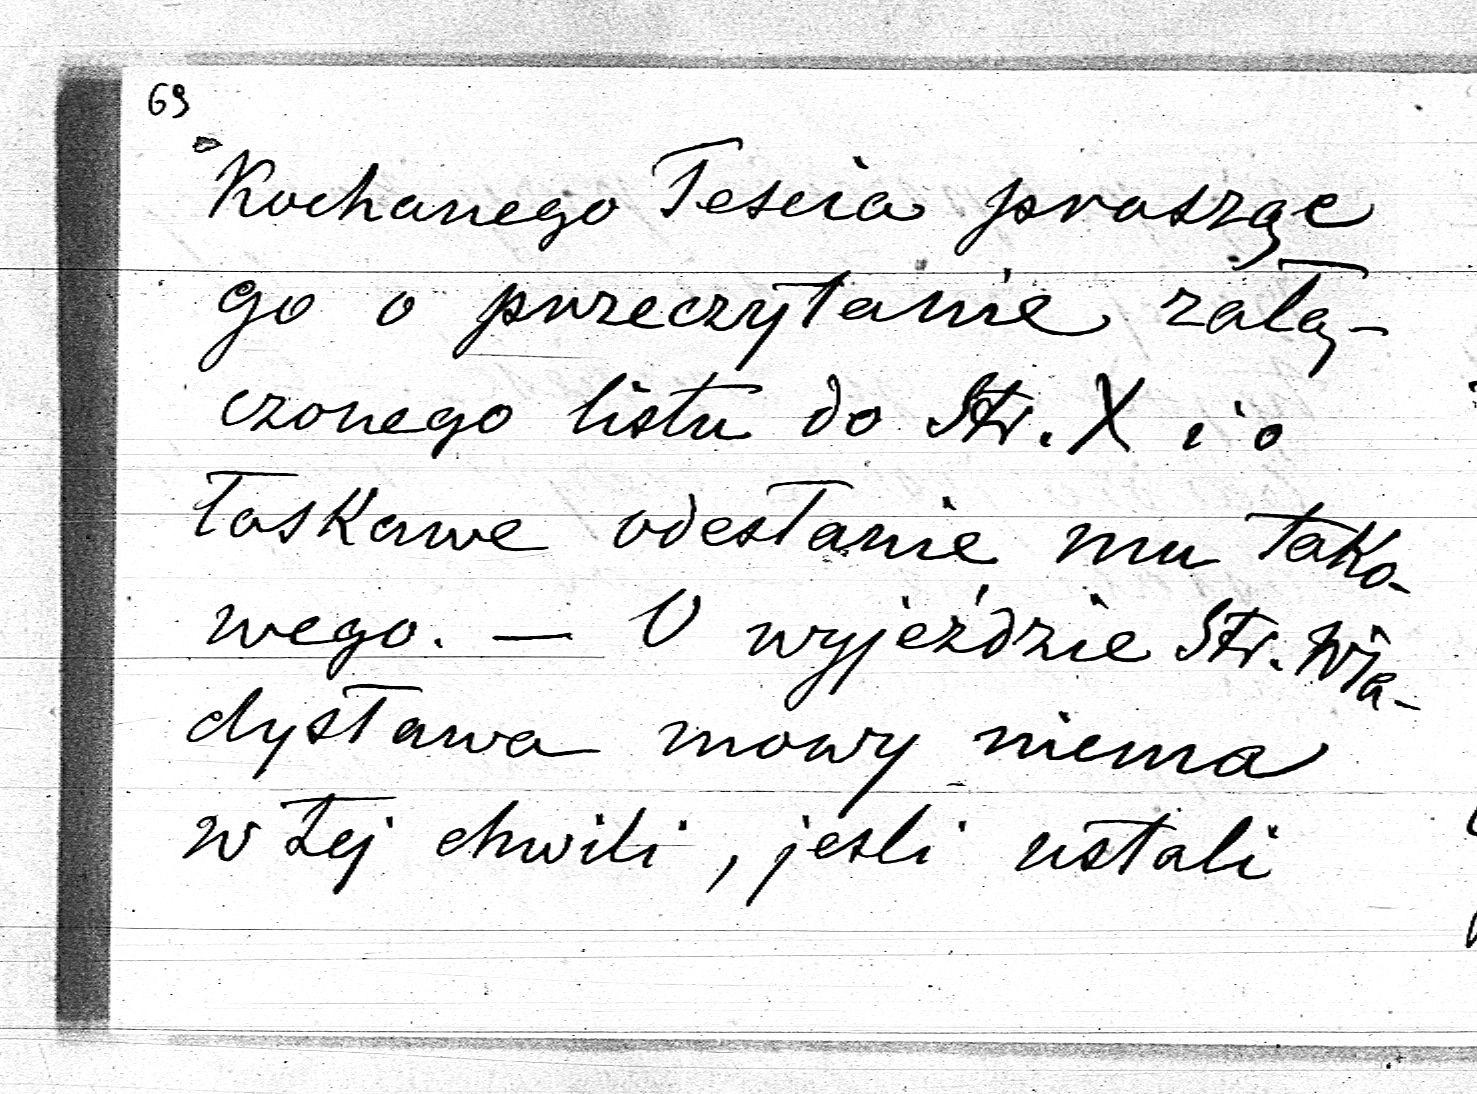 69
Kochanego Teścia prosząc
go o przeczytanie załą-
czonego listu do Str. X i o
łaskawe odesłanie mu tako-
wego. — O wyjeździe Str. Wła-
dysława mowy niema
w tej chwili, jeśli ustali